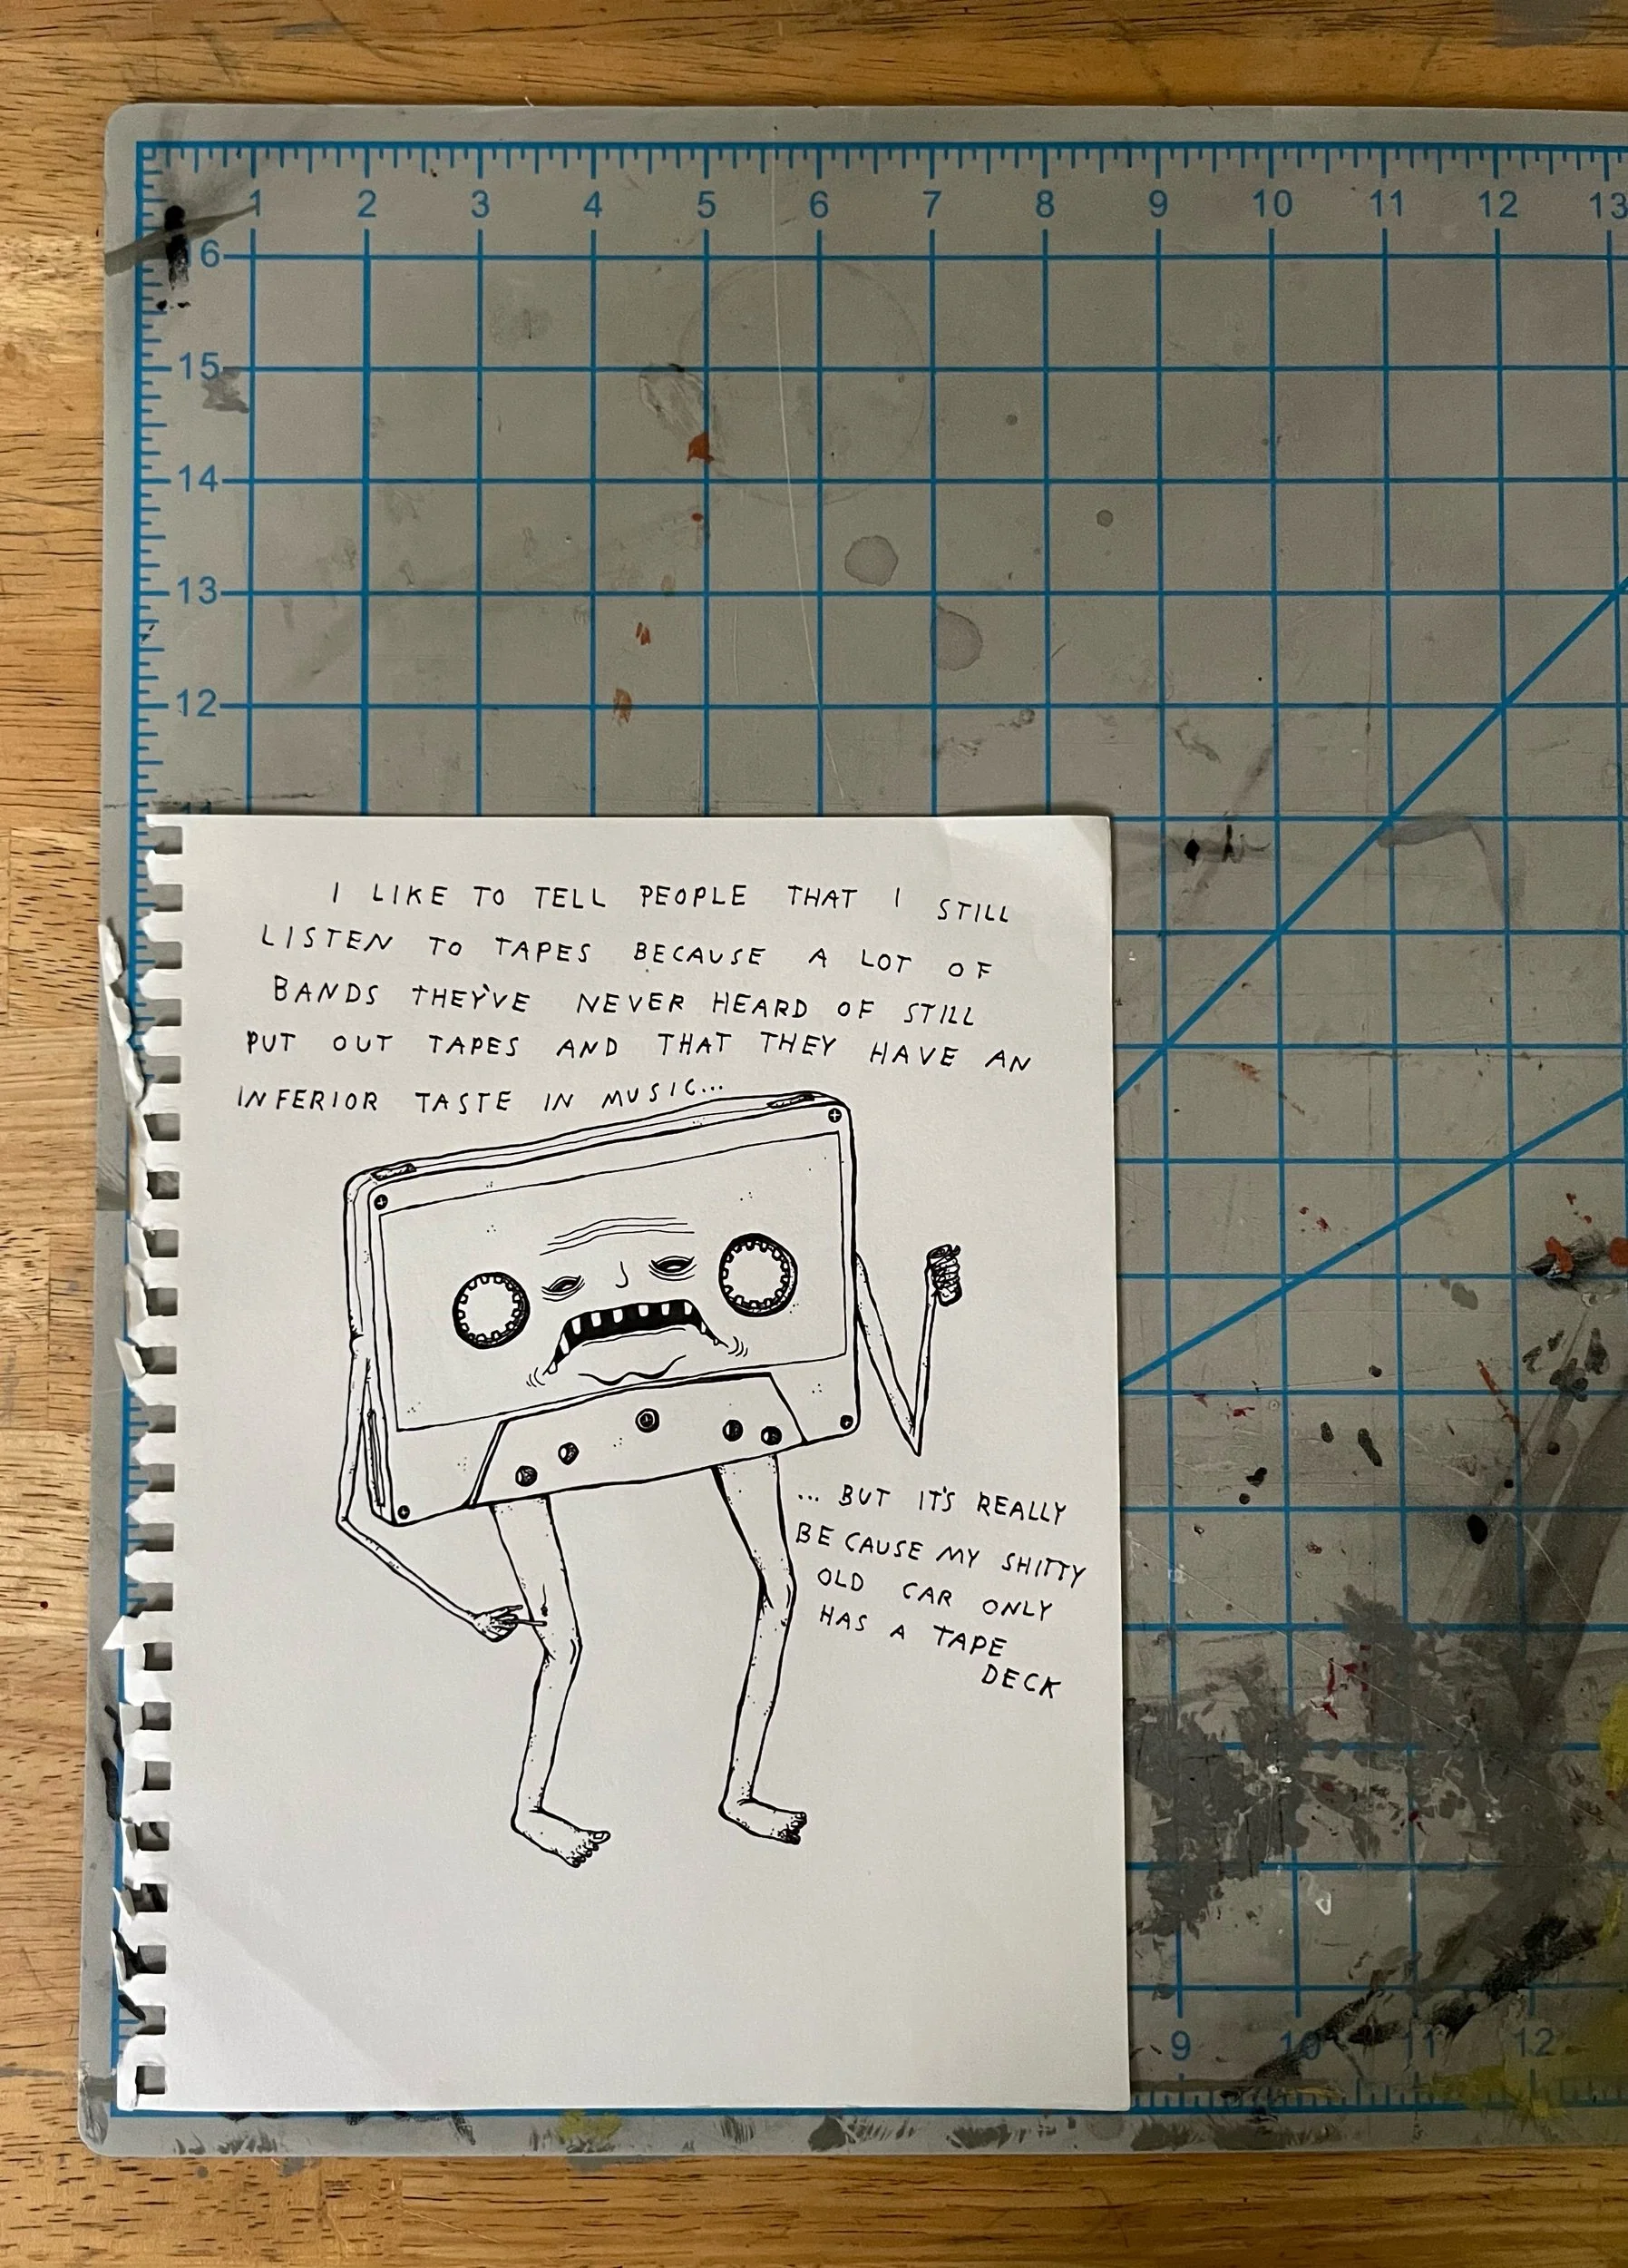 1 2 3 4 5 6 7 8 9 10 11 12 13
16
15
14
13
12
11
I LIKE TO TELL PEOPLE THAT I STILL
LISTEN TO TAPES BECAUSE A LOT OF
BANDS THEY'VE NEVER HEARD OF STILL
PUT OUT TAPES AND THAT THEY HAVE AN
INFERIOR TASTE IN MUSIC...
... BUT IT'S REALLY
BECAUSE MY SHITTY
OLD CAR ONLY
HAS A TAPE
DECK
9 10 11 12